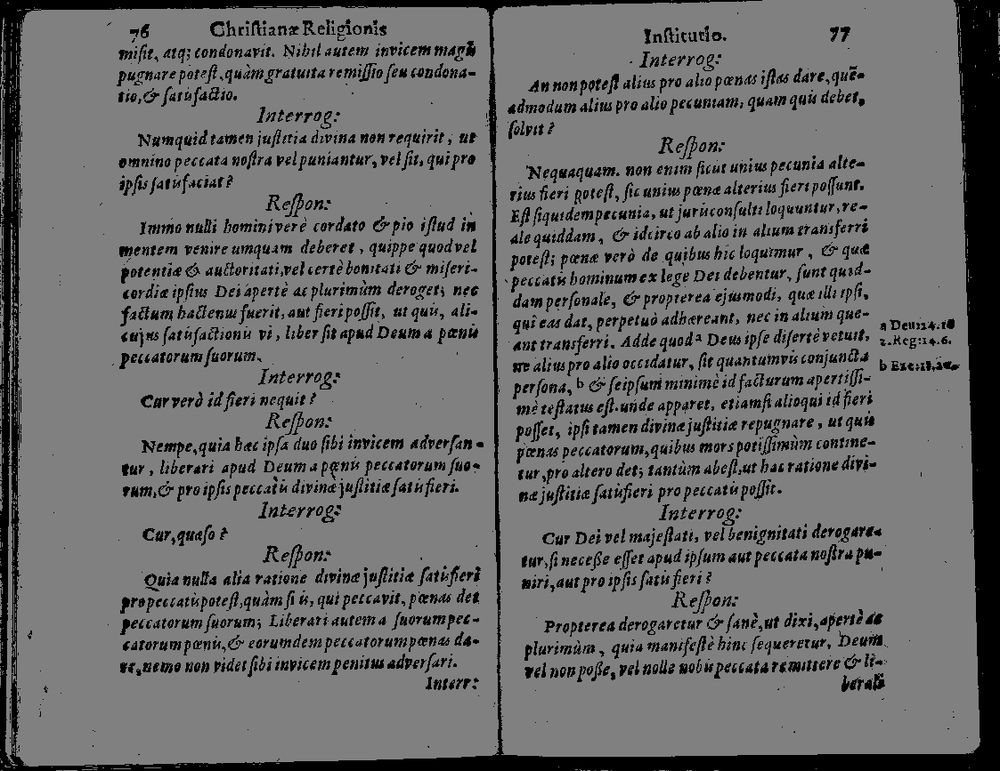 76 Christianæ Religionis
misit, atq; condonavit. Nihil autem invicem magis
pugnare potest, quàm gratuita remissio seu condona-
tio, & satisfactio.
Interrog:
Numquid tamen justitia divina non requirit, ut
omnino peccata nostra vel puniantur, vel sit, qui pro
ipsis satisfaciat?
Respon:
Immo nulli homini verè cordato & pio istud in
mentem venire umquam deberet, quippe quod vel
potentiæ & auctoritati, vel certè bonitati & miseri-
cordiæ ipsius Dei apertè ac plurimùm deroget; nec
factum hactenus fuerit, aut fieri possit, ut quis, ali-
cujus satisfactionis vi, liber sit apud Deum a pœnis
peccatorum suorum.
Interrog:
Cur verò id fieri nequit?
Respon:
Nempe, quia hæc ipsa duo sibi invicem adversan-
tur, liberari apud Deum a pœnis peccatorum suo-
rum, & pro ipsis peccatis divinæ justitiæ satisfieri.
Interrog:
Cur, quæso?
Respon:
Quia nulla alia ratione divinæ justitiæ satisfieri
pro peccatis potest, quàm si is, qui peccavit, pœnas det
peccatorum suorum; Liberari autem a suorum pec-
catorum pœnis, & eorumdem peccatorum pœnas da-
re, nemo non videt sibi invicem penitus adversari.
Interr:
Institutio. 77
Interrog:
An non potest alius pro alio pœnas istas dare, quē-
admodum alius pro alio pecuniam, quam quis debet,
solvit?
Respon:
Nequaquam. non enim sicut unius pecunia alte-
rius fieri potest, sic unius pœnæ alterius fieri possunt.
Est siquidem pecunia, ut jurisconsulti loquuntur, re-
ale quiddam, & idcirco ab alio in alium transferri
potest; pœnæ verò de quibus hic loquimur, & quæ
peccatis hominum ex lege Dei debentur, sunt quid-
dam personale, & propterea ejusmodi, quæ illi ipsi,
qui eas dat, perpetuò adhæreant, nec in alium que-
ant transferri. Adde quod a Deus ipse disertè vetuit,
ne alius pro alio occidatur, sit quantumvis conjuncta
persona, b & seipsum minimè id facturum apertissi-
mè testatus est. unde apparet, etiamsi alioqui id fieri
posset, ipsi tamen divinæ justitiæ repugnare, ut quis
pœnas peccatorum, quibus mors potissimùm contine-
tur, pro altero det; tantùm abest, ut hac ratione divi-
næ justitiæ satisfieri pro peccatis possit.
Interrog:
Cur Dei vel majestati, vel benignitati derogare-
tur, si necesse esset apud ipsum aut peccata nostra pu-
niri, aut pro ipsis satisfieri?
Respon:
Propterea derogaretur & sanè, ut dixi, apertè ac
plurimùm, quia manifestè hinc sequeretur, Deum
vel non posse, vel nolle nobis peccata remittere & li-
berali
a Deu: 24. 16
2. Reg: 14. 6.
b Eze: 18, 20.